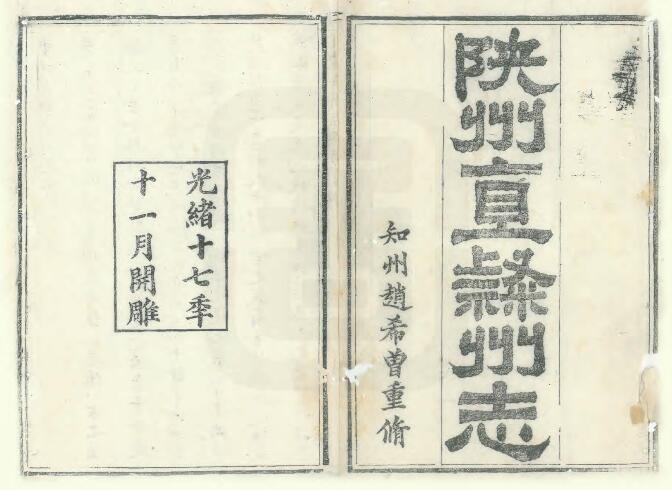 陝州直隷州志
知州趙希曾重脩
光緒十七秊
十一月開雕